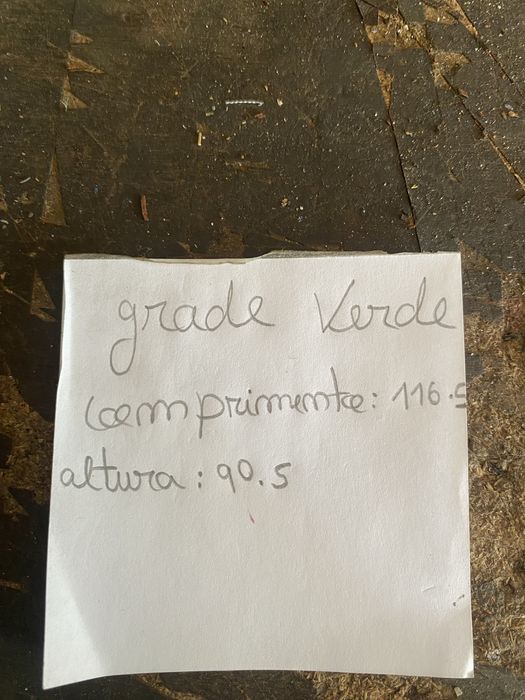 grade Verde
comprimento: 116.5
altura: 90.5